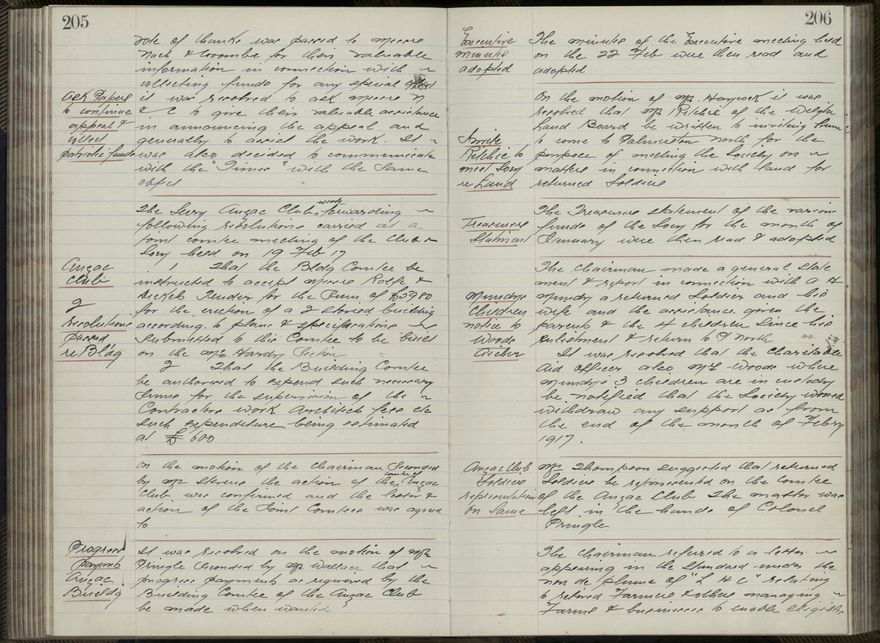 205
vote of thanks was passed to Messrs
Nash & Coombe for their valuable
information in connection with
collecting funds for any special effort
Ask Papers
to continue
appeal &
collect
patriotic funds
it was resolved to ask Messrs N
& C to give their valuable assistance
in announcing the appeal and
generally to assist the work. It
was also decided to communicate
with the "Times" with the same
object
The Secy Anzac Club wrote forwarding
following resolutions carried at a
joint comtee meeting of the Club &
Socy held on 19 Feb 17
Anzac
Club
2
resolutions
passed
re Bldg
1 That the Bldg Comtee be
instructed to accept Messrs
Tender for the sum of £3980
for the erection of a 2 storied building
according to plans & specifications
submitted to this Comtee to be built
on the Mr Hardy Section
2 That the Building Comtee
be authorised to expend such necessary
sums for the supervision of the
Contractors work Architect fees etc
such expenditure being estimated
at £600
On the motion of the Chairman Seconded
by Mr the action of the comtee of Anzac
Club was confirmed and the
action of the Joint Comtee was agreed
to
Progress
payments
Anzac
Building
It was resolved on the motion of Mr
Pringle Seconded by Mr Wallace that
progress payments as required by the
Building Comtee of the Anzac Club
be made when wanted
206
Executive
minutes
adopted
The minutes of the Executive meeting held
on the 22 Feb were then read and
adopted
On the motion of Mr Haycock it was
resolved that Mr Ritchie of the Wellgtn
Land Board be written to inviting them
to come to Palmerston North for the
purpose of meeting the Society on
matters in connection with land for
returned Soldiers
Invite
Ritchie to
meet Socy
re Land
Treasurers
Statement
The Treasurers statement of the various
funds of the Socy for the month of
January were then read & adopted
The Chairman made a general state
ment & report in connection with a H
Mundy a returned Soldier and his
wife and the assistance given the
parents & the 4 children since his
enlistment & return to P North
Mundys
Children
notice to
Woods
Aicher
It was resolved that the Charitable
Aid officer also Mrs Woods where
Mundys 3 children are in custody
be notified that the Society would
withdraw any support as from
the end of the month of Febry
1917.
Anzac Club
Soldiers
representation
on same
Mr Thompson suggested that returned
Soldiers be represented on the Comtee
of the Anzac Club The matter was
left in the hands of Colonel
Pringle
The Chairman referred to a letter
appearing in the Standard under the
nom de plume of "L H C" relating
to retired Farmers & others managing
Farms & businesses to enable eligible